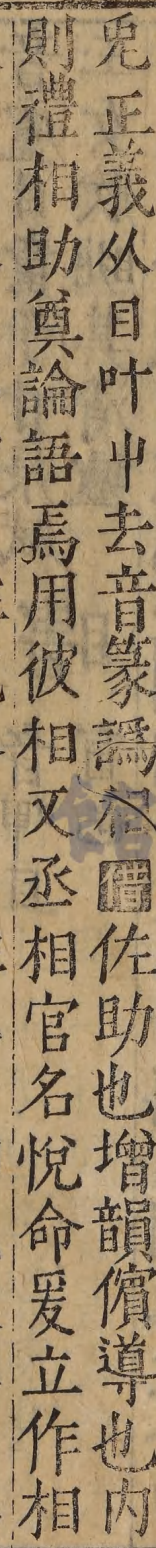 皃正義从目叶屮去音篆譌相借佐助也增韻儐導也内
則禮相助奠論語焉用彼相又丞相官名悅命爰立作相